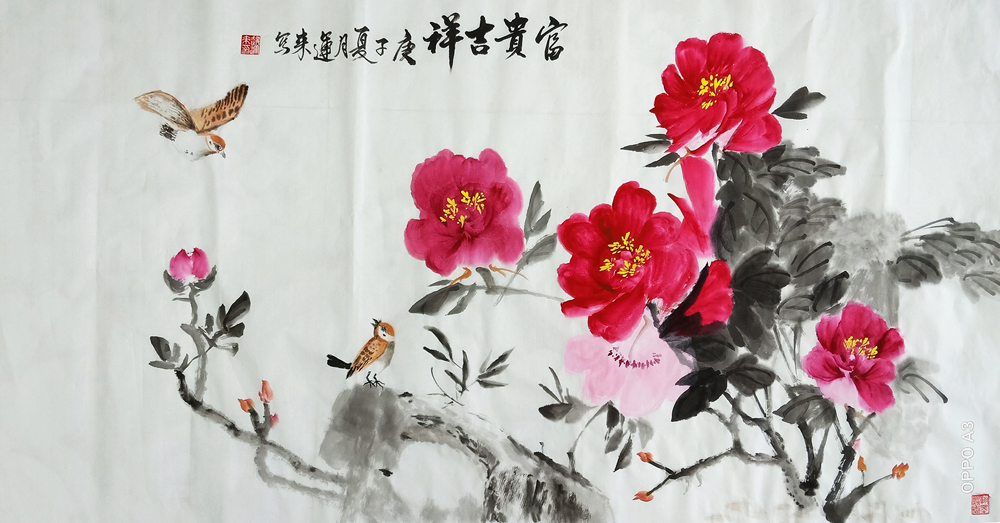 富貴吉祥庚子夏月運来写
OPPO A3